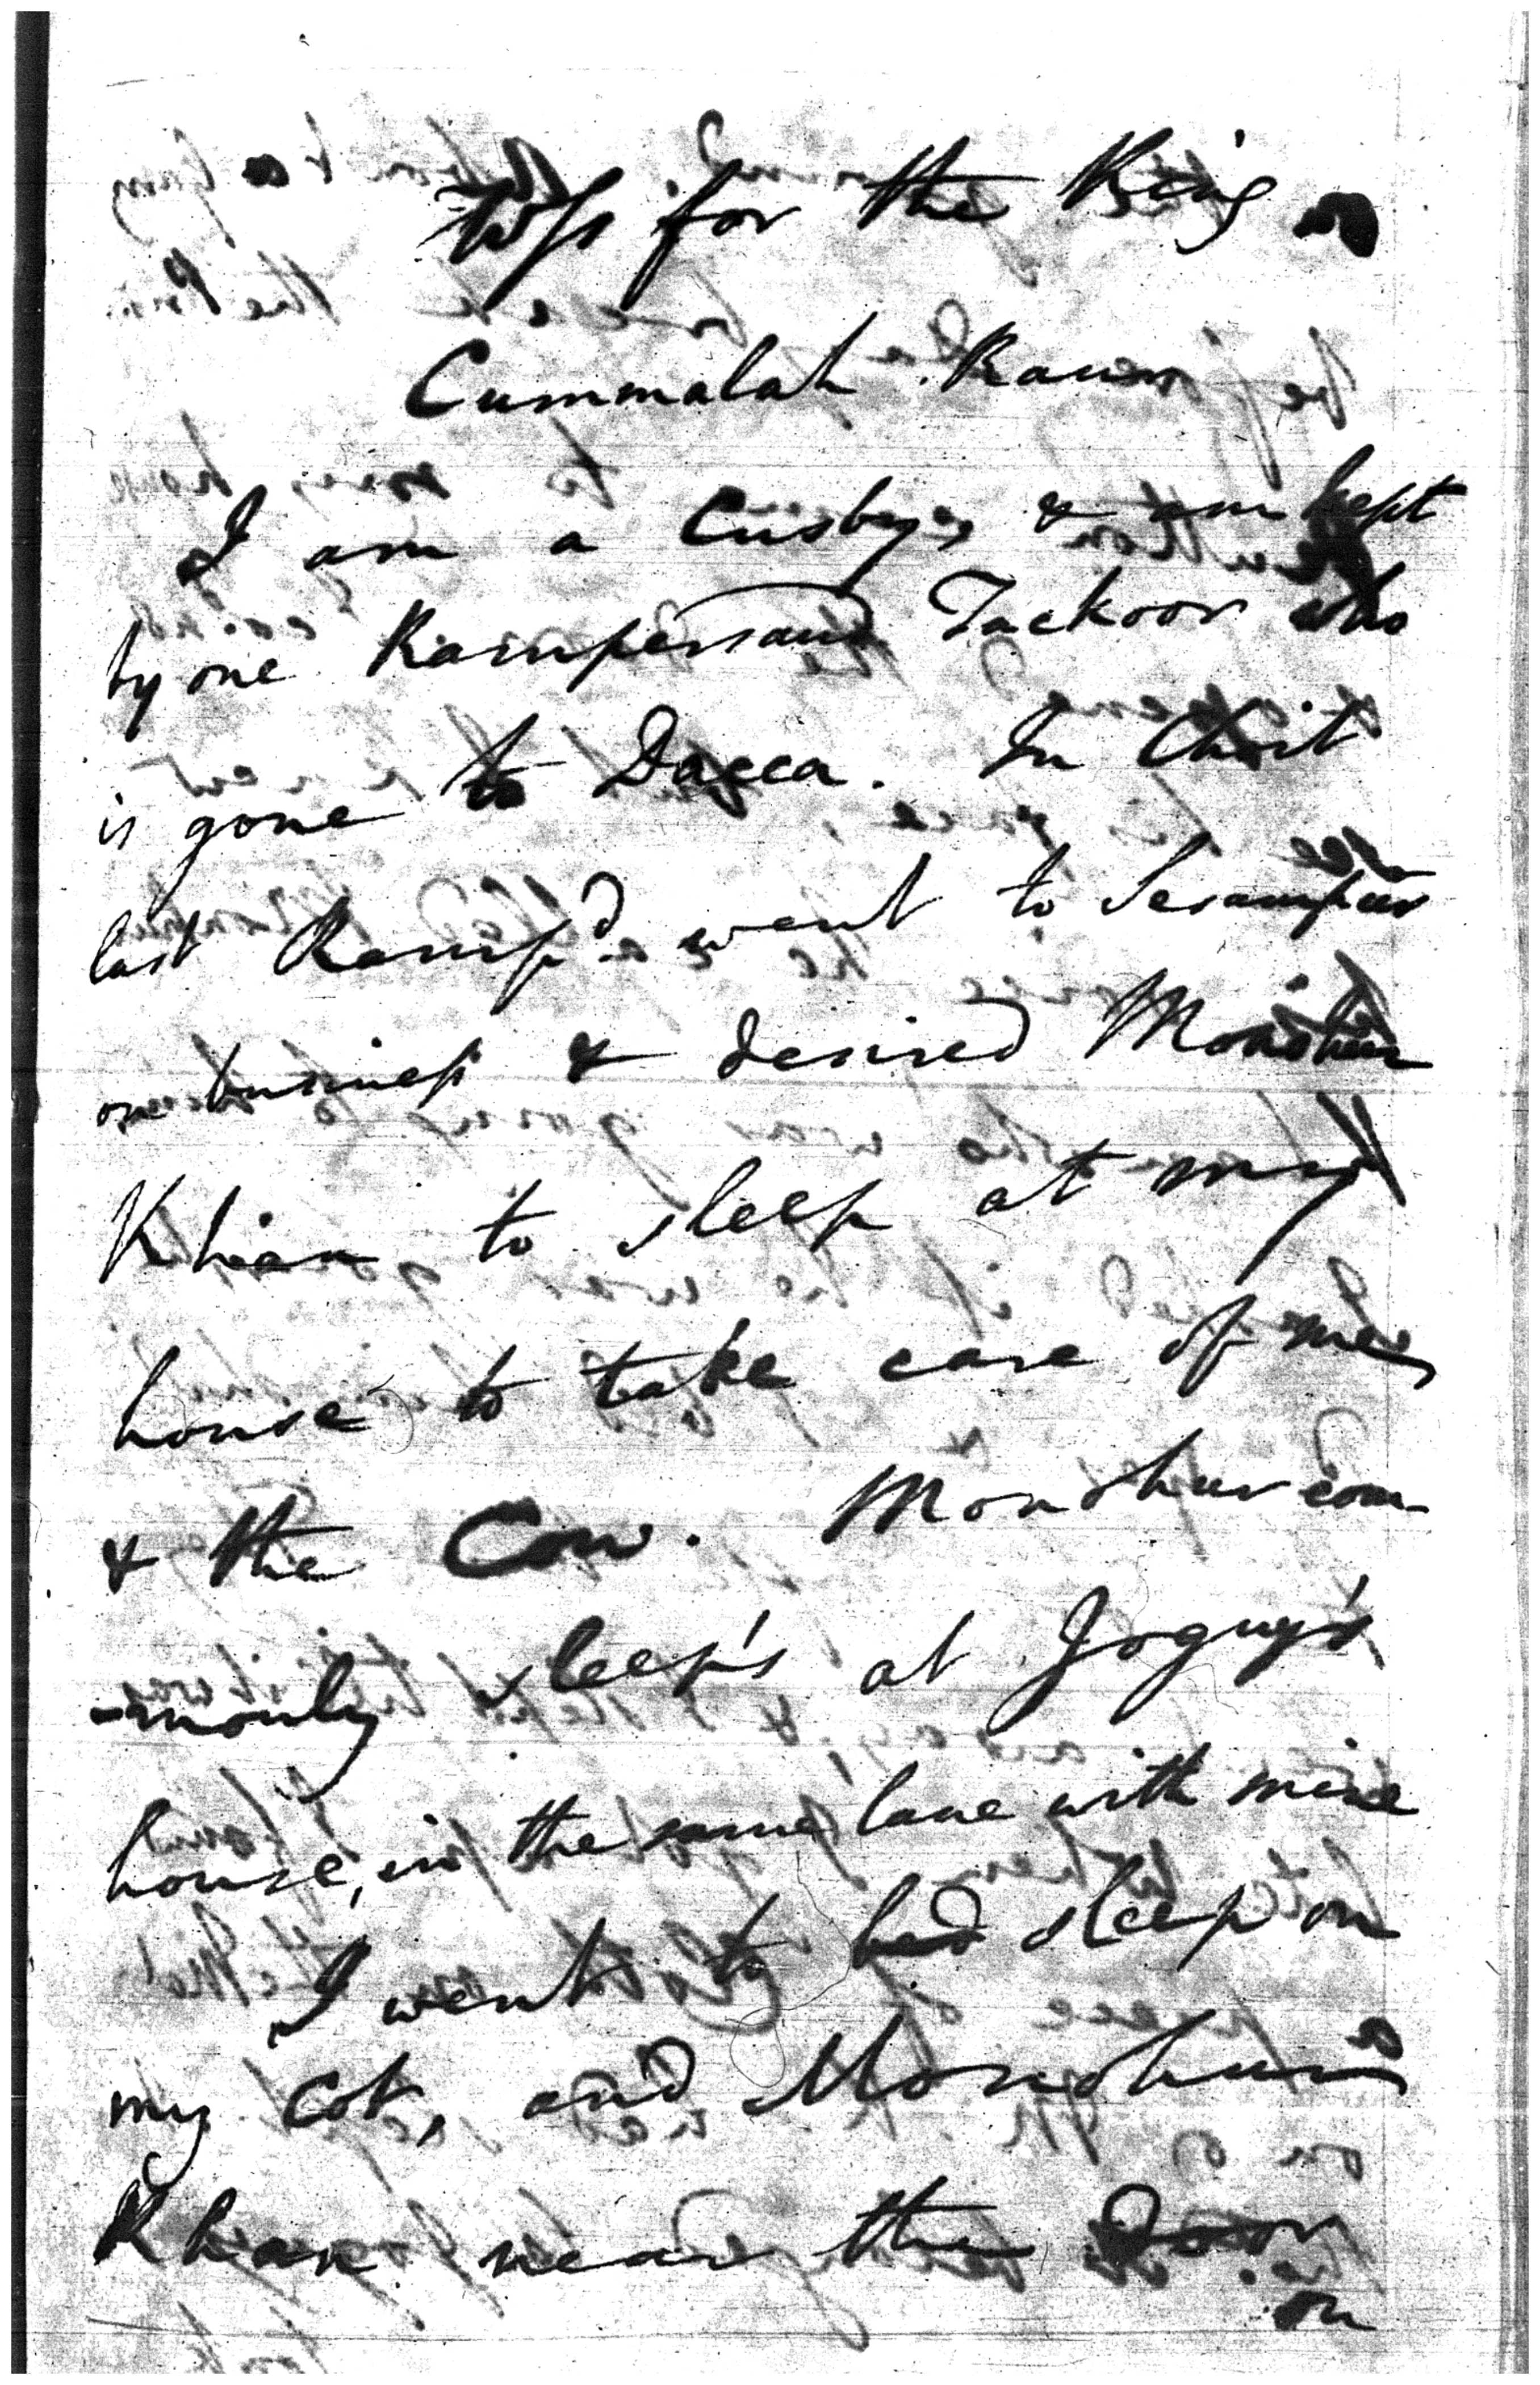 Wss for the King
Cummalah Raur
I am a Cusby, & am kept
by one Rampersaud Tackoor who
is gone to Dacca. In Choit
last Ramp'd went to Serampore
on business & desired Monohur
Khan to sleep at my
house to take care of me,
& the Cow. Monohur com-
-monly sleep's at Joguy's
house, in the same lane with mine
I went to bed sleep on
my Cot, and Monohur
Khan near the Door
on